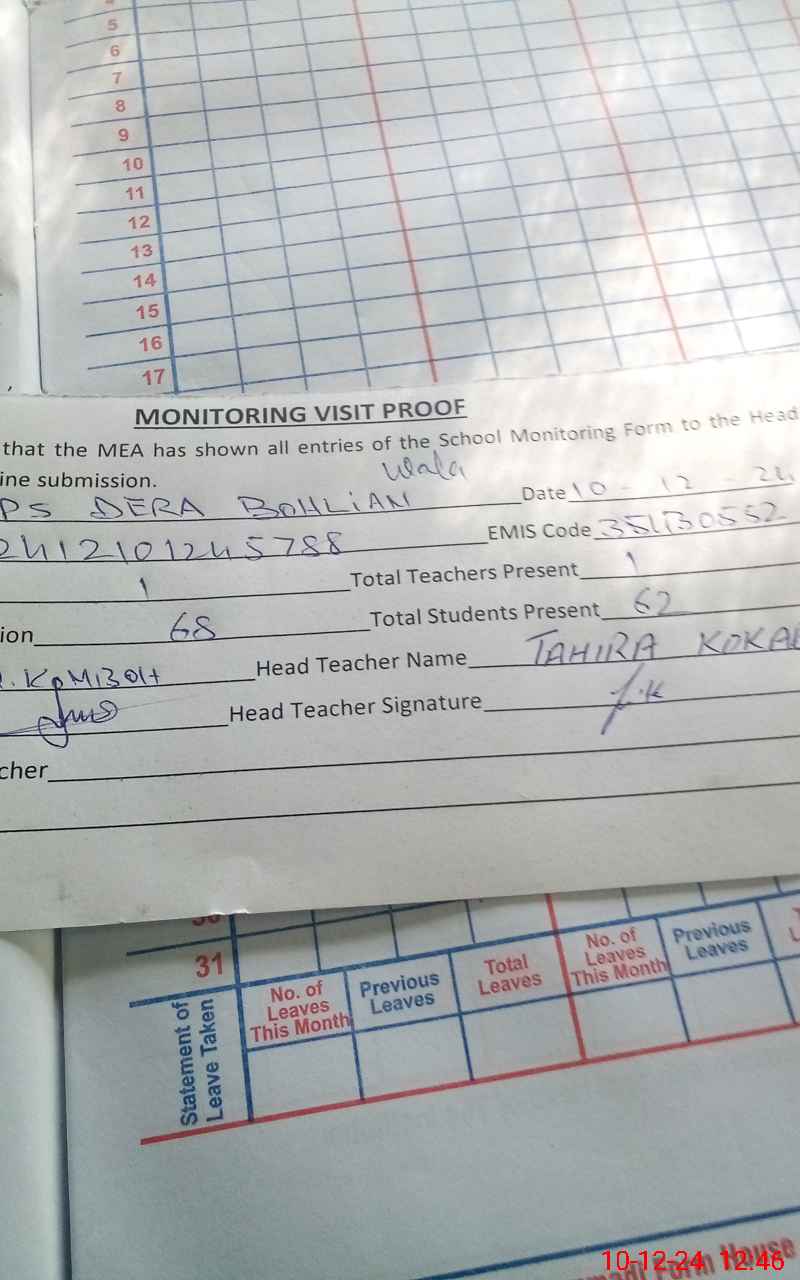 5
6
7
8
9
10
11
12
13
14
15
16
17
MONITORING VISIT PROOF
that the MEA has shown all entries of the School Monitoring Form to the Head
ine submission.
wala
PS DERA BOHLIAN Date 10-12-24
2412101245788 EMIS Code 35130552
1 Total Teachers Present 1
ion 68 Total Students Present 62
Head Teacher Name TAHIRA KOKAB
Head Teacher Signature
cher
30
31
Statement of Leave Taken
No. of Leaves This Month Previous Leaves Total Leaves No. of Leaves This Month Previous Leaves
Form House
10-12-24 12:46